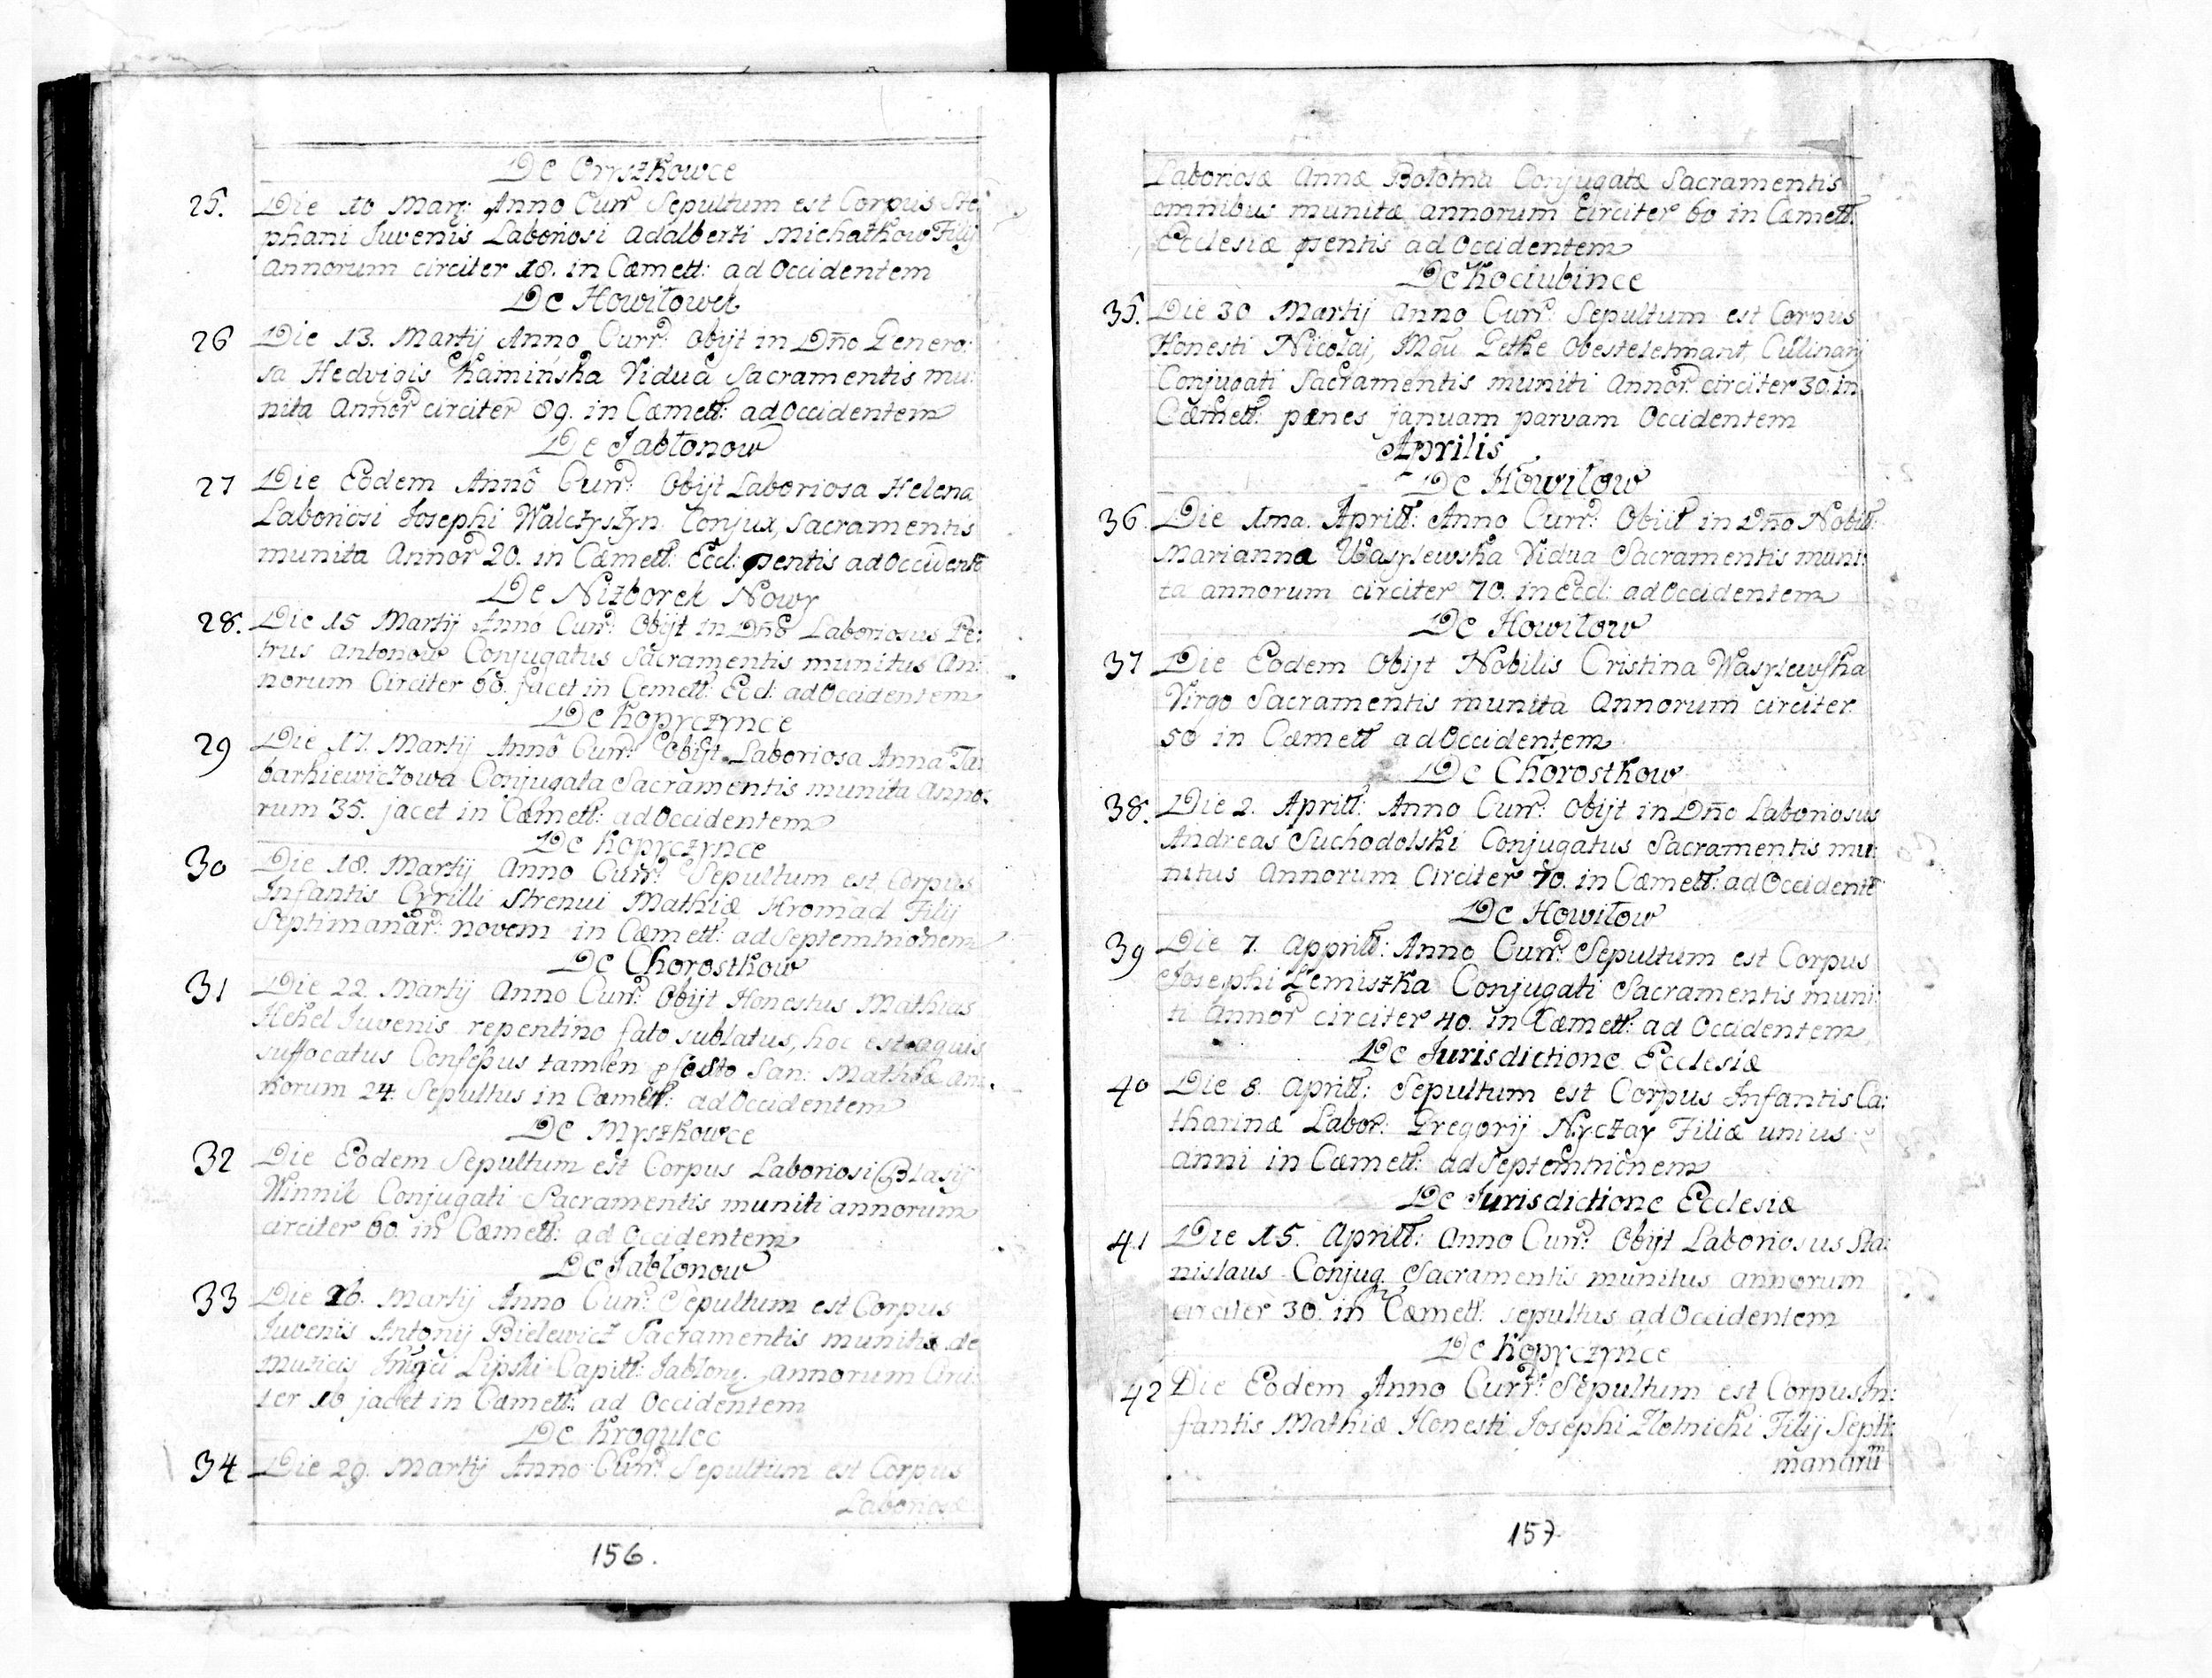 De Oryszkowce
25. Die 10 Marz: Anno Curr: Sepultum est Corpus Ste:
phani Juvenis Laboriosi Adalberti Michałkow Filij
Annorum circiter 18. in Cœmett: ad Occidentem
De Howiłow
26 Die 13. Martij Anno Curr: Obijt in Dño Genero:
sa Hedvigis Kamińska Vidua Sacramentis mu:
nita Annor circiter 89. in Cœmett: ad Occidentem
De Jabłonow
27 Die Eodem Anno Curr: Obijt Laboriosa Helena
Laboriosi Josephi Walczyszyn Conjux, Sacramentis
munita Annor 20. in Cœmett: Eccl: pentis ad Occident
De Nizborek Nowy
28. Die 15 Martij Anno Curr: Obijt in Dño Laboriosus Pe:
trus Antonow Conjugatus Sacramentis munitus An:
norum Circiter 60. Jacet in Cemett: Eccl: ad Occidentem
De Kopyczynce
29 Die 17. Martij Anno Curr: Obijt Laboriosa Anna Ta:
barkiewiczowa Conjugata Sacramentis munita Anno:
rum 35. jacet in Cœmett: ad Occidentem
De Kopyczynce
30 Die 18. Martij Anno Curr: Sepultum est Corpus
Infantis Cyrilli Strenui Mathiæ Hromad Filij
Septimanar: novem in Cœmett: ad Septemtrionem
De Chorostkow
31 Die 22. Martij Anno Curr: Obijt Honestus Mathias
Hekel Juvenis repentino fato sublatus, hoc est aquis
suffocatus Confessus tamen festo San: Mathiæ An:
norum 24. Sepultus in Cœmett: ad Occidentem
De Myszkowce
32 Die Eodem Sepultum est Corpus Laboriosi Blasij
Winnik Conjugati Sacramentis muniti annorum
circiter 60. in Cœmett: ad Occidentem
De Jablonow
33 Die 26. Martij Anno Curr: Sepultum est Corpus
Juvenis Antonij Bielewicz Sacramentis munitis de
Muzicis Lipski Capitt: Jablon: Annorum Circi
ter 18 jacet in Cœmett: ad Occidentem
De Krogulec
34 Die 29. Martij Anno Curr: Sepultum est Corpus
Laboriosæ
156.
Laboriosæ Annæ Bołotna Conjugatæ Sacramentis
omnibus munitæ annorum circiter 60 in Cœmett:
Ecclesiæ pentis ad Occidentem
De Kociubince
35. Die 30 Martij Anno Curr: Sepultum est Corpus
Honesti Nicolaj, Culinarij
Conjugati Sacramentis muniti Annor circiter 30. in
Cœmett: pœnes januam parvam Occidentem
Aprilis
De Howiłow
36 Die 1ma. Aprill: Anno Curr: Obiit in Dño Nobil:
Marianna Wasylewska Vidua Sacramentis muni:
ta annorum circiter 70. in Eccl: ad Occidentem
De Howiłow
37 Die Eodem Obijt Nobilis Cristina Wasylewska
Virgo Sacramentis munita Annorum circiter
50 in Cœmett ad Occidentem
De Chorostkow
38. Die 2. Aprill: Anno Curr: Obijt in Dño Laboriosus
Andreas Suchodolski Conjugatus Sacramentis mu:
nitus Annorum Circiter 70. in Cœmett: ad Occidente
De Howiłow
39 Die 7. Apprill: Anno Curr: Sepultum est Corpus
Josephi Lemiszka Conjugati Sacramentis muni:
ti Annor circiter 40. in Cœmett: ad Occidentem
De Jurisdictione Ecclesiæ
40 Die 8. Aprill: Sepultum est Corpus Infantis Ca:
tharinæ Labor: Gregorij Nyczay Filiæ unius
anni in Cœmett: ad Septemtrionem
De Jurisdictione Ecclesiæ
41 Die 15. Aprill: Anno Curr: Obijt Laboriosus Sta:
nislaus Conjug. Sacramentis munitus annorum
circiter 30. in Cœmett: sepultus ad Occidentem
De Kopyczynce
42 Die Eodem Anno Curr: Sepultum est Corpus In:
fantis Mathiæ Honesti Josephi Zlotnicki Filij Septi:
manarū
157